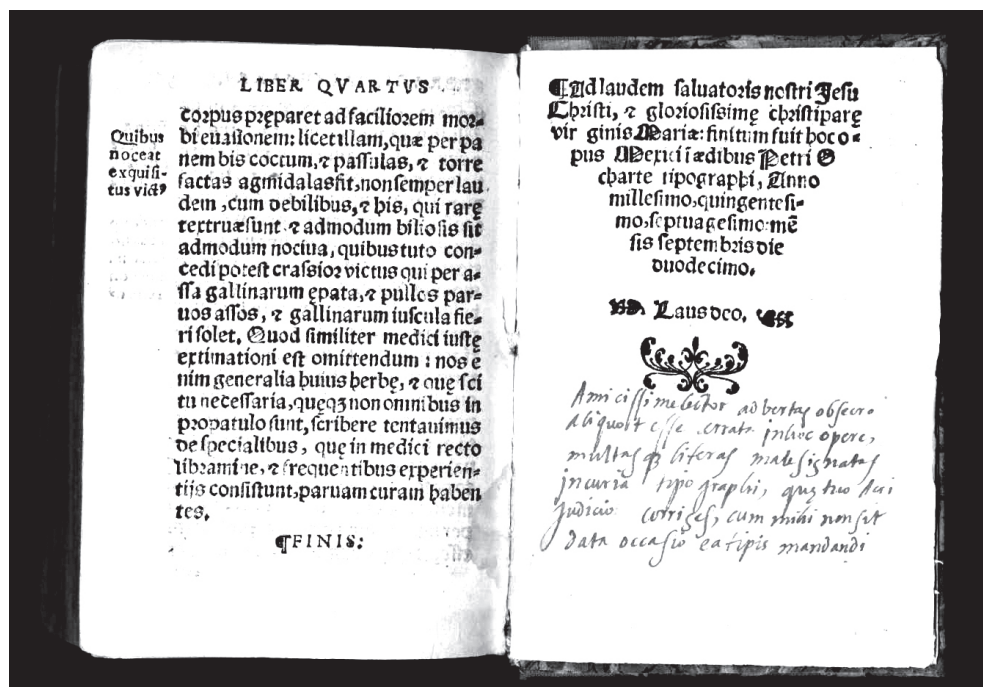 LIBER QVARTVS
Quibus
noceat
exquisi-
tus vict⁹
corpus pręparet ad faciliorem mor-
bi euasionem: licet illam, quæ per pa
nem bis coctum, ⁊ passulas, ⁊ torre
factas agmidalas fit, non semper lau
dem, cum debilibus, ⁊ his, qui rarę
textruæ sunt ⁊ admodum biliosis sit
admodum nociua, quibus tuto con-
cedi potest crassior victus qui per a-
ssa gallinarum ępata, ⁊ pullos par-
uos assos, ⁊ gallinarum iuscula fie-
ri solet. Quod similiter medici iustę
extimationi est omittendum: nos e
nim generalia huius herbę, ⁊ quę sci
tu necessaria, quęqꝫ non omnibus in
propatulo sunt, scribere tentauimus
de specialibus, quę in medici recto
libramine, ⁊ frequentibus experien-
tijs consistunt, paruam curam haben
tes.
¶FINIS:
¶Ad laudem saluatoris nostri Jesu
Christi, ⁊ gloriosissimę christiparę
vir ginis Mariæ: finitum fuit hoc o-
pus Mexici ĩ ædibus Petri O
charte tipographi, Anno
millesimo, quingentesi-
mo, septuagesimo: mẽ
sis septembris die
duodecimo.
Laus deo.
Amicissime lector advertas obsecro
aliquot esse errata in hoc opere,
multasqꝫ literas male signatas
incuria tipographi, quę tuo Acri
judicio corriges, cum mihi non sit
data occasio ea tipis mandandi